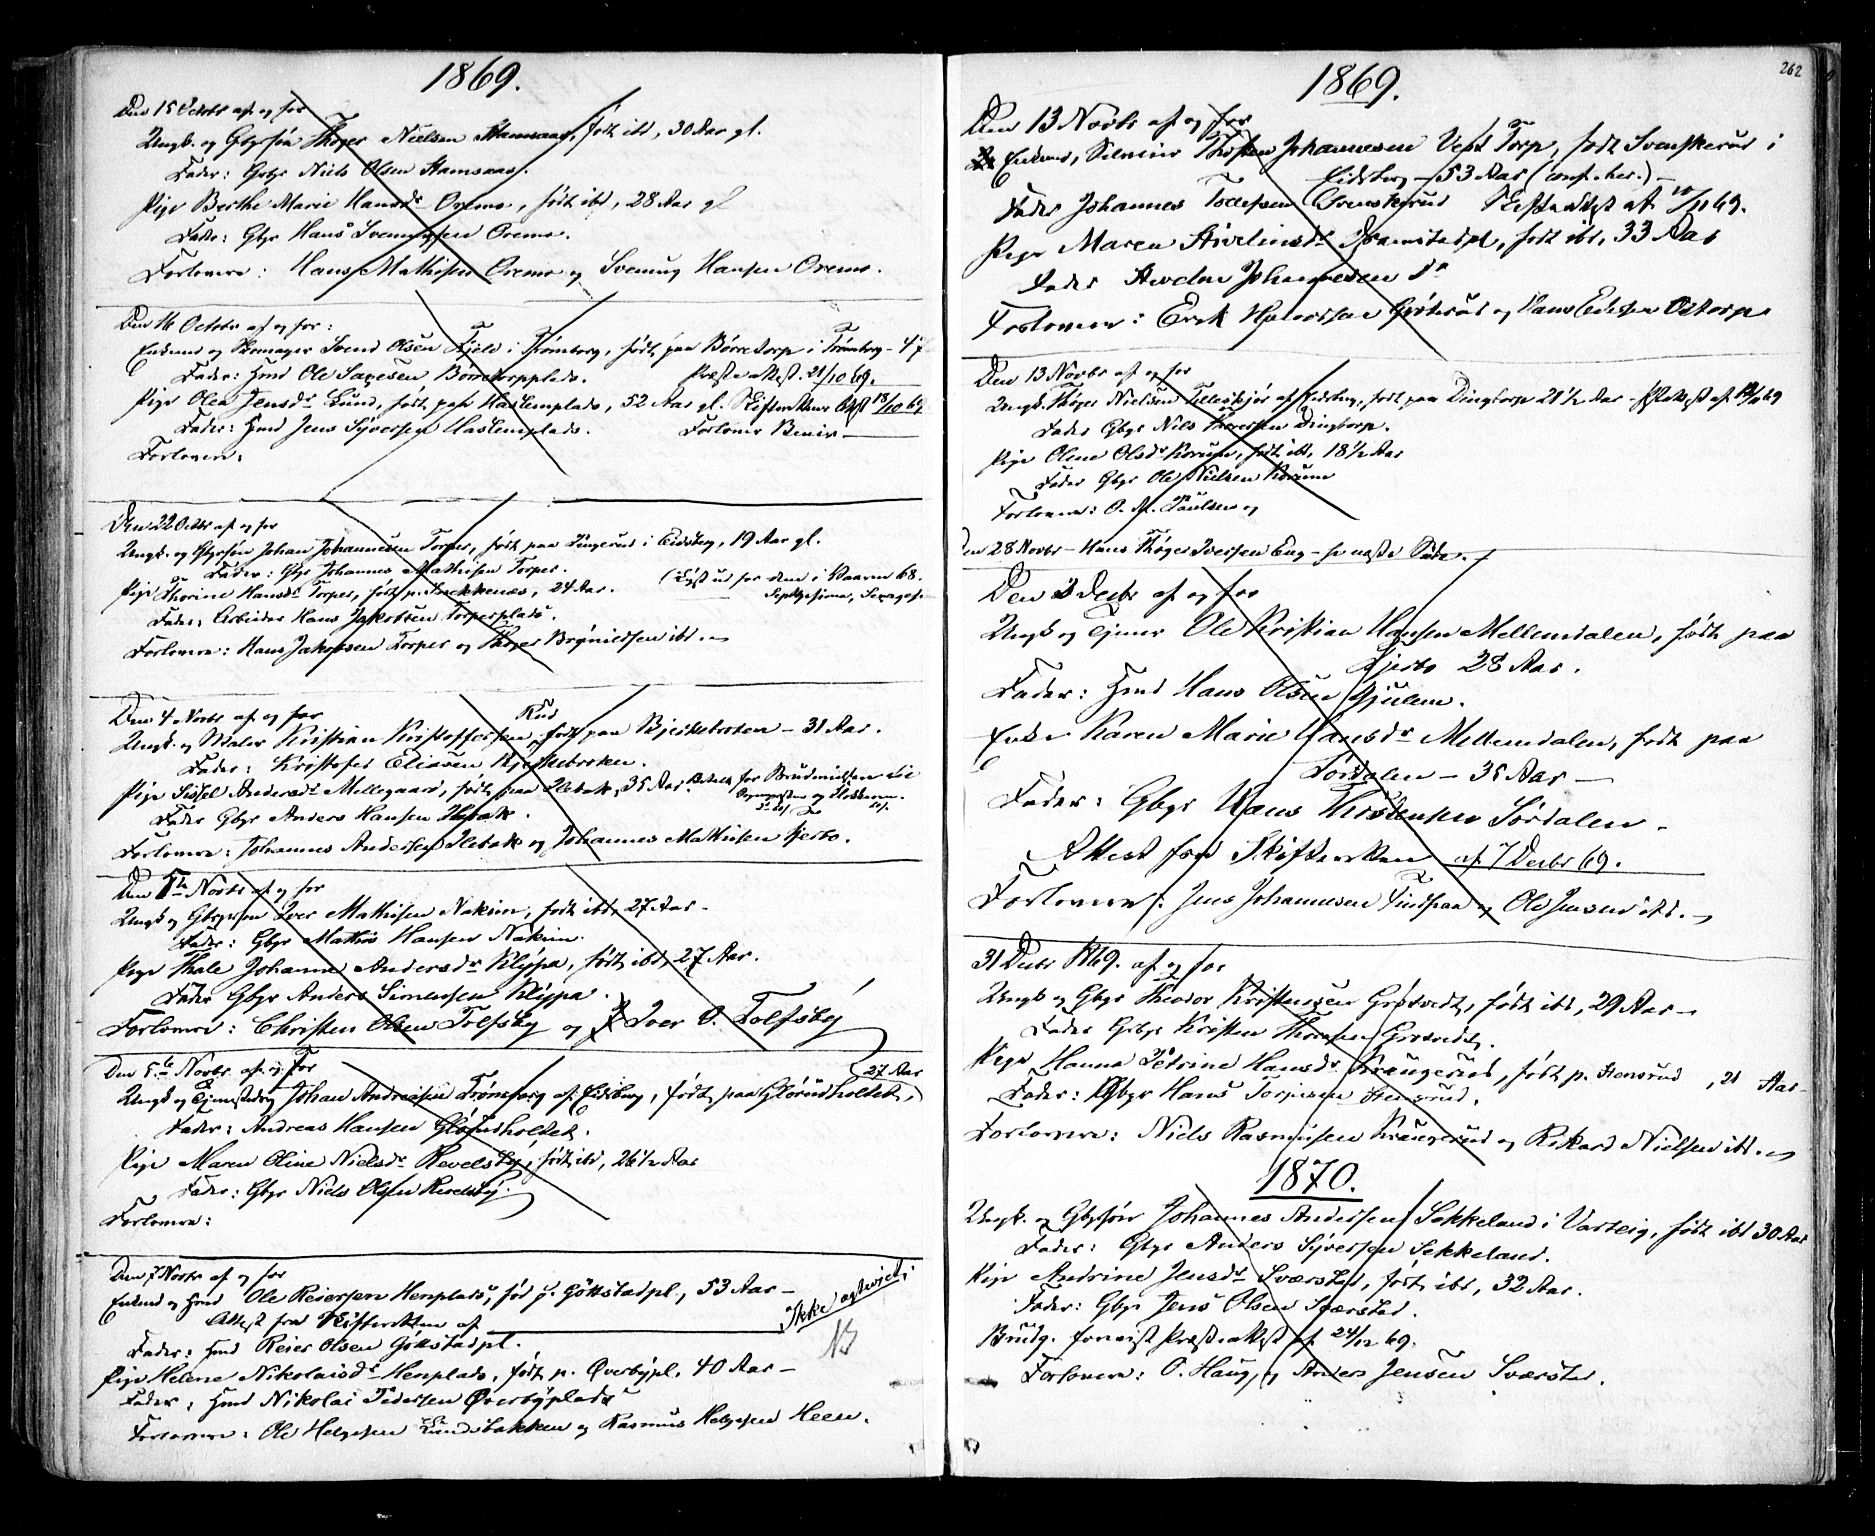 1869.
Den 15 Octobr af og for
Ungk. og Gbrsøn Thøger Nielsen Hamsaas, født ibd, 30 Aar gl.
Fader: Gbr Niels Olsen Hamsaas.
Pige Berthe Marie Hansdr Oremo, født ibd, 28 Aar gl
Fader: Gbr Hans Svenungsen Oremo.
Forlovere: Hans Mathisen Oremo og Svenung Hansen Oremo.
Den 16 Octobr af og for:
Enkemd og Skomager Svend Olsen Fjeld i Trømborg, født paa Børretorp i Trømborg - 47
Fader: Hmd Ole Larsen, Børretorpplads. Præsteattest. 21/10 69.
Pige Olea Jensdr Lund, født paa Haslemplads, 52 Aar gl. Skifterettens Attst 13/10 69
Fader: Hmd Jens Syversen Haslemplads. Forlover Bevis
Forlovere:
Den 22 Octbr af og for
Ungk. og Gbrsøn Johan Johannesen Torper, født paa Lingerud i Eidsberg, 19 Aar gl.
Fader: Gbr Johannes Mathisen Torper. (Lyst ud for dem i Vaaren 68.
Pige Thorine Hansdr Torper, født p. Frekkenæs, 24 Aar. Septtgesima, Sexages.
Fader: Arbeider Hans Jakobsen Torperplads.
Forlovere: Hans Jakobsen Torper og Thøger Brynildsen ibd.
Den 4 Novbr af og for
Ungk. og Maler Kristian Kristoffersen Rud, født paa Bjerkebraten - 31 Aar.
Fader: Kristofer Eliasen Bjerkebraten.
Pige Sissel Andersdr Mellegaard, født paa Ilebæk, 35 Aar.
Fader Gbr Anders Hansen Ilebæk.
Forlovere: Johannes Andersen Ilebæk og Johannes Mathisen Kjerbo.
Den 5te Novbr af og for
Ungk og Gbrsøn Iver Mathisen Nakim, født ibd, 27 Aar.
Fader: Gbr Mathis Hansen Nakim.
Pige Thale Johanne Andersdr Klÿpa, født ibd, 27 Aar.
Fader Gbr Anders Simensen Klÿpa.
Forlovere: Christen Olsen Tolfsby og Iver O. Tolfsbÿ
Den 5te Novbr af og for
Ungk og Tjenestedreng Johan Andreasen Trømborg af Eidsberg, født paa Glørudholtet, 27 Aar
Fader: Andreas Hansen Glørudholtet.
Pige Maren Oline Nielsdr Revelsby, født ibd, 26½ Aar
Fader: Gbr Niels Olsen Revelsby.
Forlovere:
Den 7 Novbr af og for
Enkemd og Hmd Ole Reiersen Henplads, fød p. Gökstadpl., 53 Aar -
Attest fra Skifteretten af Ikke ægteviet.
Fader: Hmd Reier Olsen Gökstadpl. NB
Pige Helene Nikolaisdr Henplads, født p. Øverbÿpl. 40 Aar -
Fader: Hmd Nikolai Pedersen Øverbÿplads
Forlovere: Ole Helgesen Lundebakken og Rasmus Helgesen Heen.
262
1869.
Den 13 Novbr af og for
Enkemd, Selveier Thosten Johannesen Vest Torp, født Svenskerud i
Eidsberg - 53 Aar (conf. her.) -
Fader Johannes Svenskerud Skifteattest af 10/11 69.
Pige Maren Avelinsdr Dramstadpl, født ibd, 33 Aar
Fader Avelin Johannesen dr
Forlovere: Erik Halvorsen og Hans Ostorp
Den 13 Novbr af og for
Ungk. Thøger Nielsen af Eidsberg, født paa Dingtorp 21½ Aar - Pr.attest af 12/11 69
Fader Gbr Niels Iversen Dingtorp.
Pige Oline Olsdr Korsum, født ibd, 18½ Aar
Fader Gbr Ole Nielsen Korsum
Forlovere: O. A. Paulsen og
Den 28 Novbr - Hans Thøger Iversen Eng - se næste Side.
Den 3 Decbr af og for
Ungk og Tjener Ole Kristian Hansen Mellemdalen, født paa
Kjerbo 28 Aar.
Fader: Hmd Hans Olsen Gjulem.
Enke Karen Marie Hansdr Mellemdalen, født paa
Sørdalen - 35 Aar -
Fader: Gbr Hans Thostensen Sørdalen.
Attest fra Skifteretten af 7 Decbr 69.
Forlovere: Jens Johannesen Tindpaa og Ole Jensen ibd.
31 Decbr 1869. af og for
Ungk og Gbr Theodor Kristensen Grøtvedt, født ibd, 29 Aar
Fader Gbr Kristen Thoresen Grøtvedt.
Pige Hanna Petrine Hansdr Krangerud, født p. Hensrud, 21 Aar.
Fader: Gbr Hans Torgersen Hensrud.
Forlovere: Niels Rasmusen Krangerud og Rikard Nielsen ibd.
1870.
Ungk. og Gbrsøn Johannes Andersen Sekkeland i Varteig, født ibd 30 Aar
Fader: Gbr Anders Syversen Sekkeland.
Pige Andrine Jensdr Sværstad, født ibd, 32 Aar.
Fader: Gbr Jens Olsen Sværstad.
Brudg. forevist Præsteattest af 24/12 69.
Forlovere: O. Haug, og Anders Jensen Sværstad.